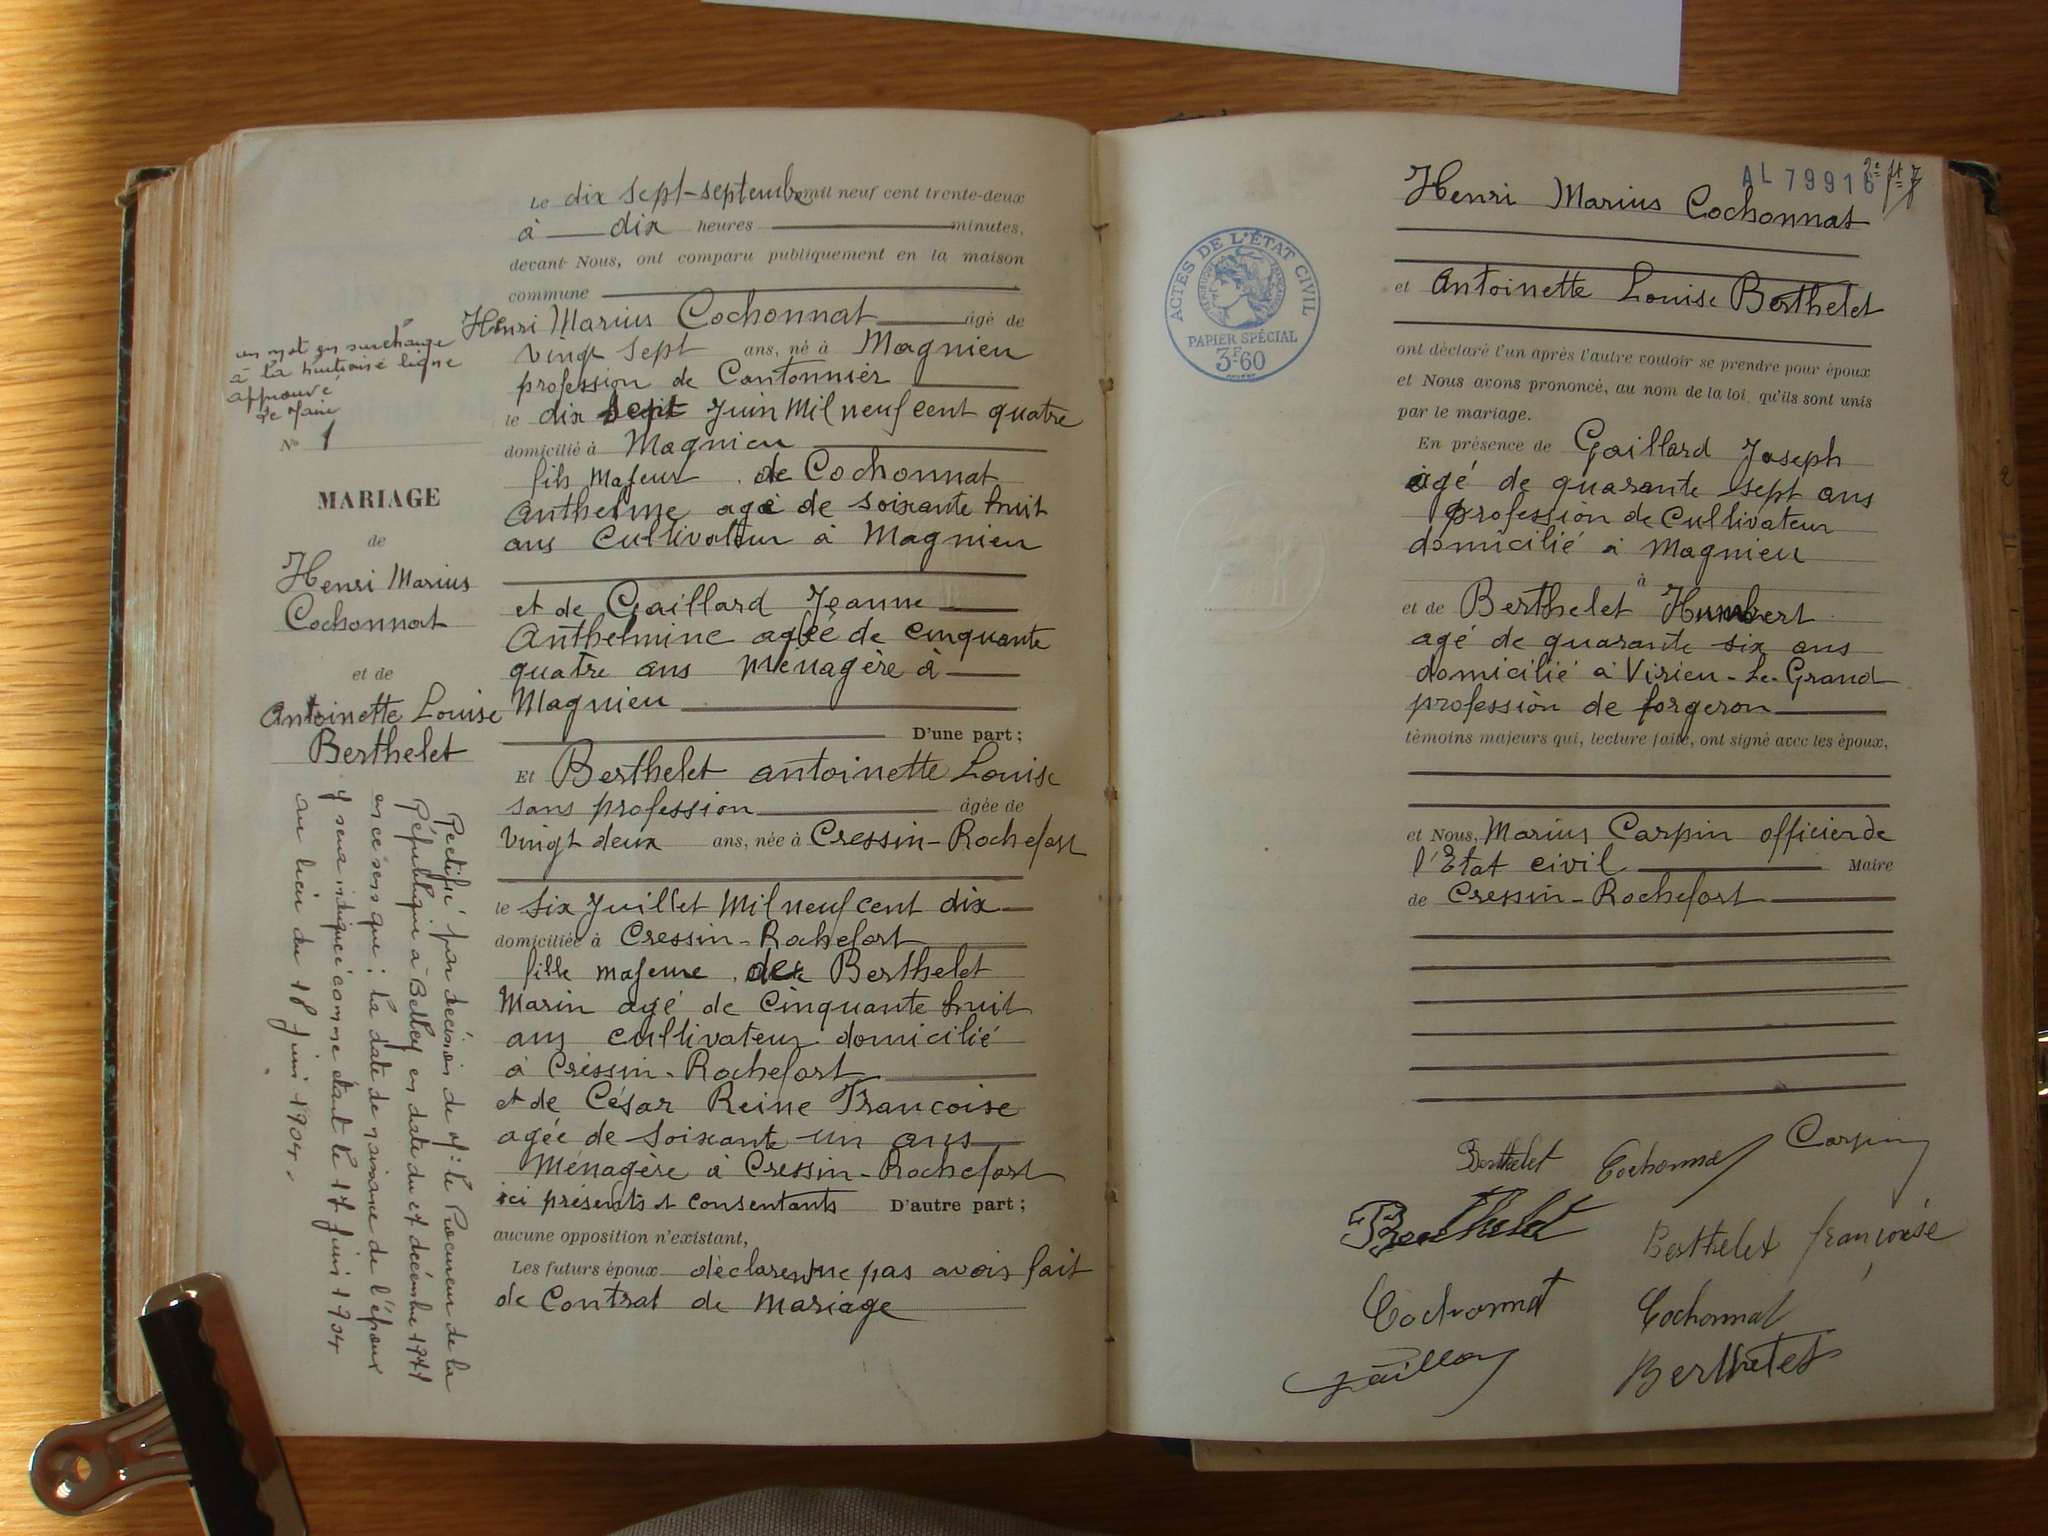 un mot en surcharge
à la huitième ligne
approuvé
Le Maire
No 1
MARIAGE
de
Henri Marius
Cochonnat
et de
Antoinette Louise
Berthelet
Rectifié par décision de Mr le Procureur de la
République à Belley en date du 27 décembre 1944
en ce sens que : la date de naissance de l'époux
y sera indiquée comme étant le 17 Juin 1904
au lieu du 18 Juin 1904.
Le dix sept septembre mil neuf cent trente-deux
à dix heures minutes,
devant Nous, ont comparu publiquement en la maison
commune
Henri Marius Cochonnat âgé de
vingt sept ans, né à Magnieu
profession de Cantonnier
le dix sept Juin Mil neuf cent quatre
domicilié à Magnieu
fils majeur de Cochonnat
Anthelme agé de soixante huit
ans Cultivateur à Magnieu
et de Gaillard Jeanne
Anthelmine agée de cinquante
quatre ans Ménagère à
Magnieu
D'une part ;
Et Berthelet Antoinette Louise
sans profession âgée de
vingt deux ans, née à Cressin-Rochefort
le six Juillet Mil neuf cent dix
domiciliée à Cressin-Rochefort
fille majeure de Berthelet
Marin agé de Cinquante huit
ans cultivateur domicilié
à Cressin-Rochefort
et de César Reine Françoise
agée de soixante un ans
Ménagère à Cressin-Rochefort
ici présents et consentants D'autre part ;
aucune opposition n'existant,
Les futurs époux déclarent ne pas avoir fait
de Contrat de Mariage
AL 79916
Henri Marius Cochonnat
et Antoinette Louise Berthelet
ACTES DE L'ÉTAT CIVIL
PAPIER SPÉCIAL
3F60
ont déclaré l'un après l'autre vouloir se prendre pour époux
et Nous avons prononcé, au nom de la loi, qu'ils sont unis
par le mariage.
En présence de Gaillard Joseph
agé de quarante sept ans
profession de Cultivateur
domicilié à Magnieu
à
et de Berthelet Humbert
agé de quarante six ans
domicilié à Virieu-Le-Grand
profession de forgeron
témoins majeurs qui, lecture faite, ont signé avec les époux,
et Nous, Marius Carpin officier de
l'Etat civil Maire
de Cressin-Rochefort
Berthelet Cochonnat Carpin
Berthelet Berthelet françoise
Cochonnat Cochonnat
Gaillard Berthelet